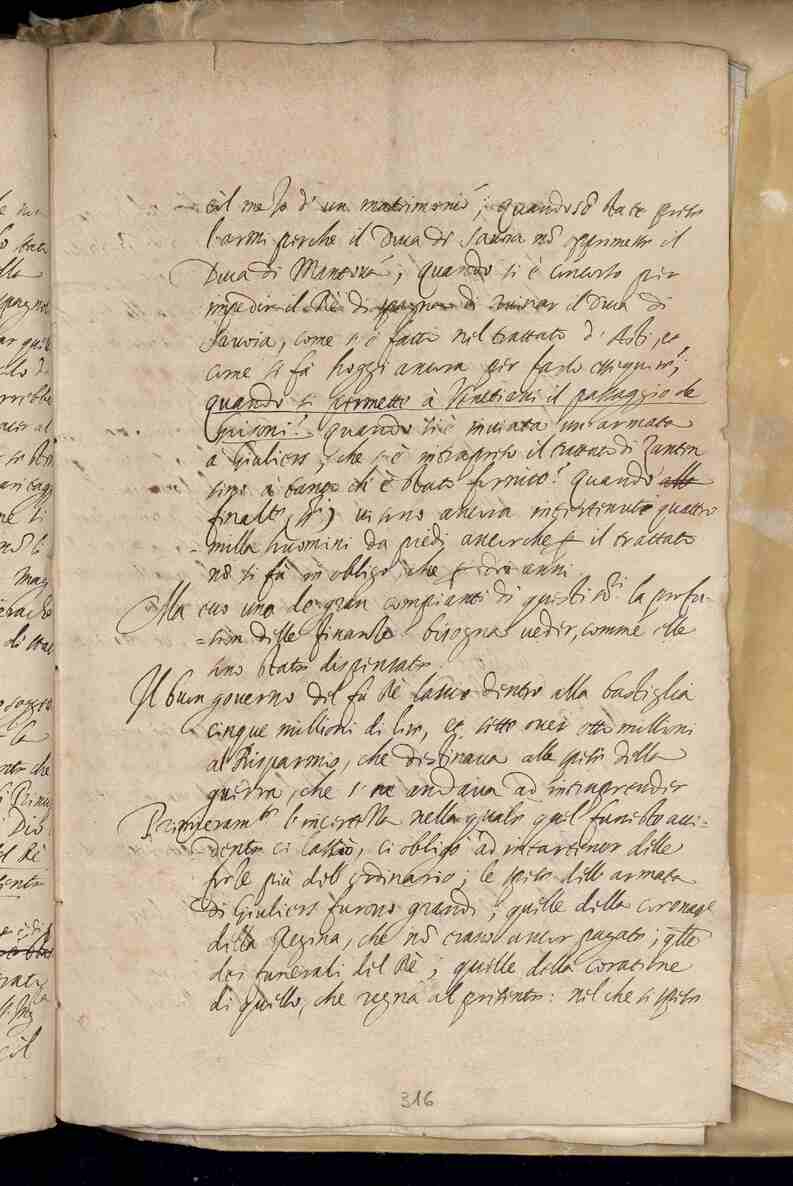 col mezo d'un matrimonio; quando sõ state prese
l'armi perche il Duca di Sauoia nõ opprimesse il
Duca di Mantoua; quando si è concorso per
impedir il Rè di spagna di ruinar il Duca di
Sauoia, come s'è fatto nel trattato d'Asti, et
come si fà hoggi ancora per farlo esseguire;
quando si permette à Venetiani il passaggio de
Grisoni? quando si è inuiata un'armata
à Giuliers, che s'è intrapreso il trattato di Zanten
sino à tanto ch'è stato fornito? quando
finalte, vi sono ancora intertenuti quattro
milla huomini da piedi ancorche il trattato
nõ si fù in obligo, che doi anni.
Ma ecco uno de gran compianti di questi Sri. la profu-
=sion delle finanze bisogna ueder, comme elle
sino state dispensate.
Il buon governo del fù Rè lasciò dentro alla bastiglia
cinque millioni di lire, et sette ouer otto millioni
al Risparmio, che destinaua alle spese della
guerra, che s'ne andaua ad intraprender
Primieramte. l'incertezza nella quale quel funesto acci=
=dente ci lassiò, ci obligò ad intertener delle
forze più dell'ordinario; le spese dell'armata
di Giuliers furono grandi; quelle della coronae
della Regina, che nõ erano ancor pagate; qlle
dei funerali del Rè; quelle della coratione
di quello, che regna al presente: nel che si spese
316